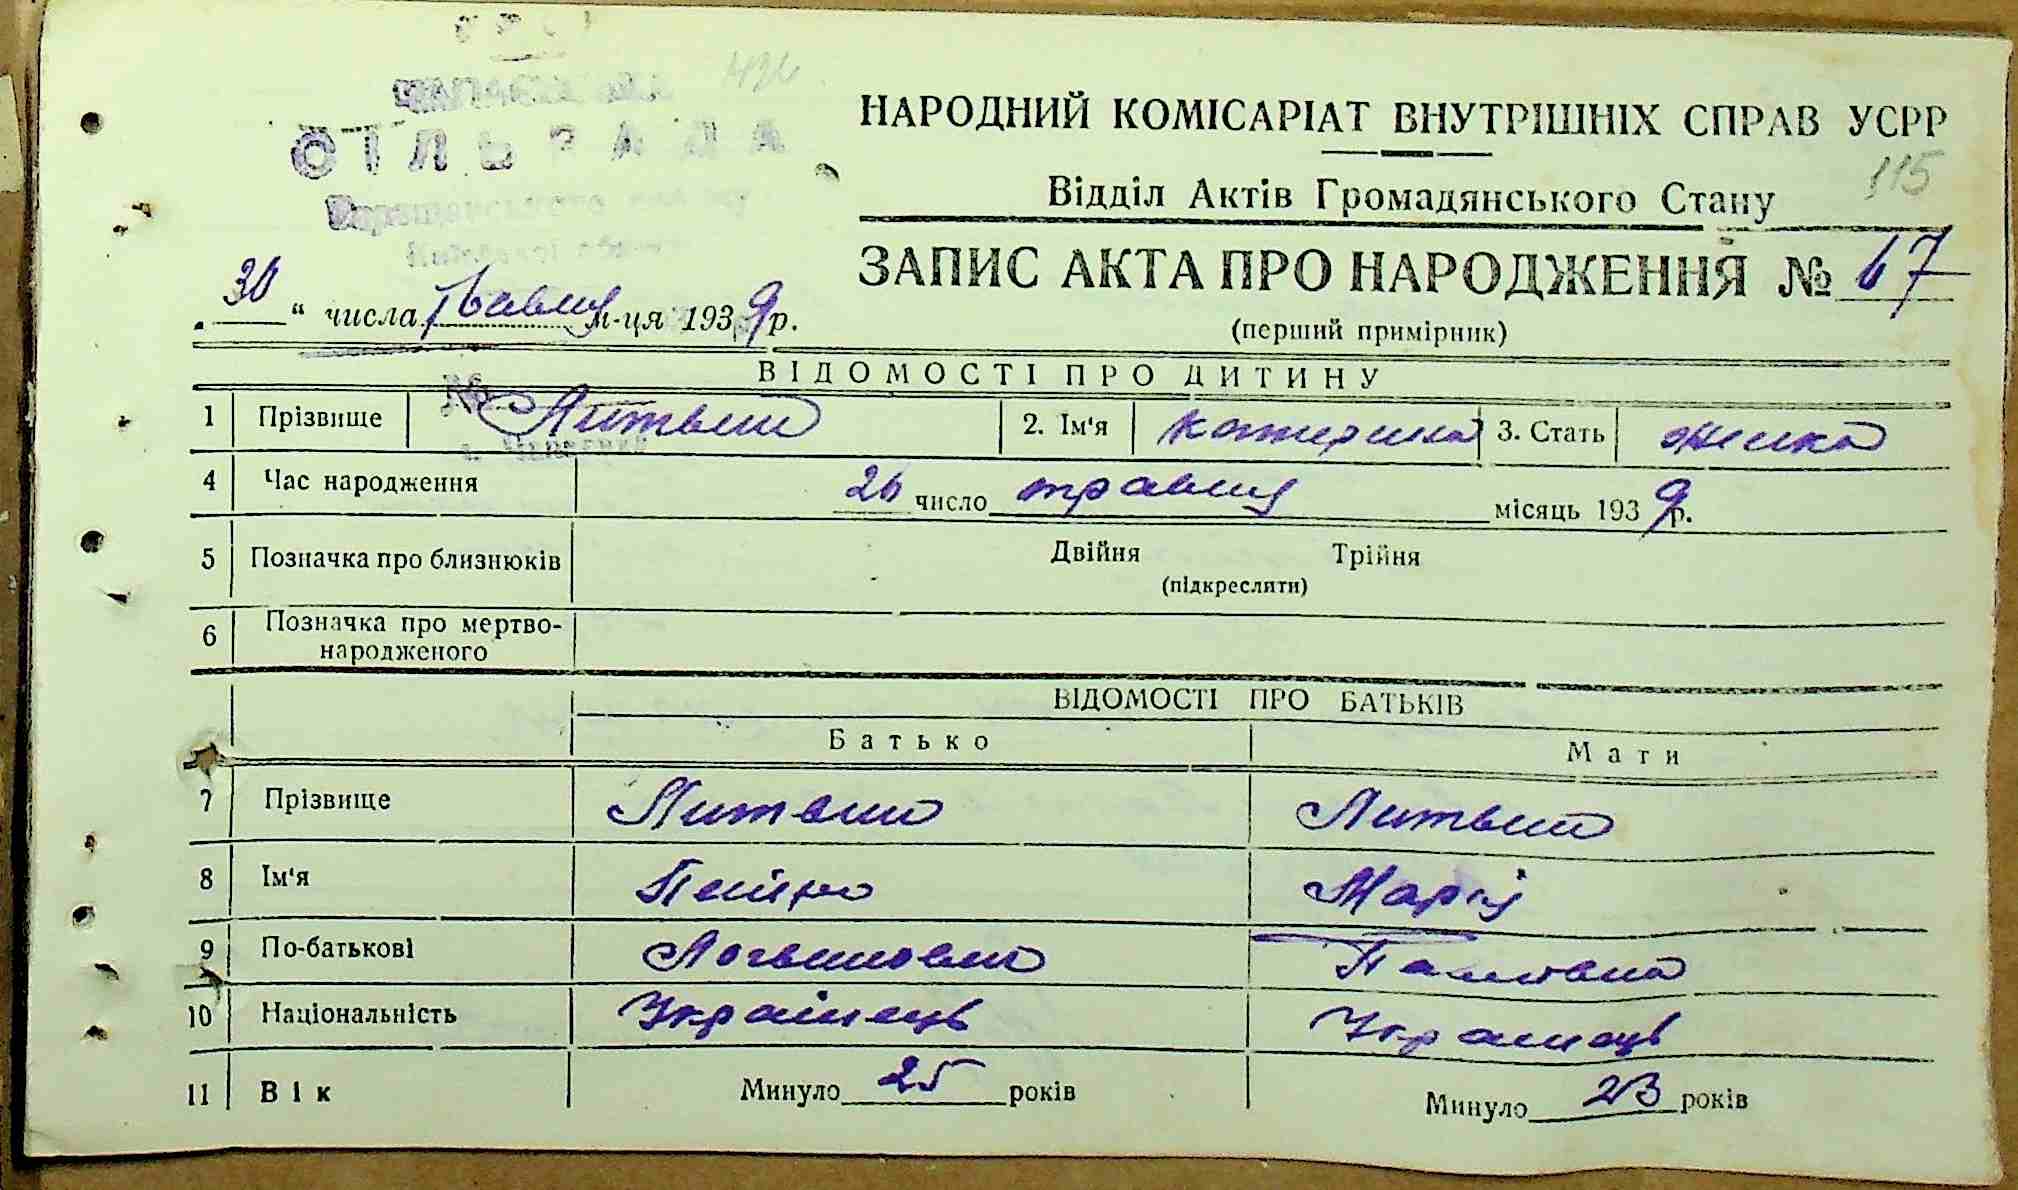 СІЛЬРАДА
НАРОДНИЙ КОМІСАРІАТ ВНУТРІШНІХ СПРАВ УСРР
115
Відділ Актів Громадянського Стану
ЗАПИС АКТА ПРО НАРОДЖЕННЯ № 67
(перший примірник)
„30“ числа травня м-ця 1939 р.
ВІДОМОСТІ ПРО ДИТИНУ
1 Прізвище Литвин 2. Ім'я Катерина 3. Стать жінка
4 Час народження 26 число травня місяць 1939 р.
5 Позначка про близнюків Двійня Трійня
(підкреслити)
6 Позначка про мертво-
народженого
ВІДОМОСТІ ПРО БАТЬКІВ
Батько Мати
7 Прізвище Литвин Литвин
8 Ім'я Марія
9 По-батькові Логвинович
10 Національність Українець Українець
11 Вік Минуло 25 років Минуло 23 років